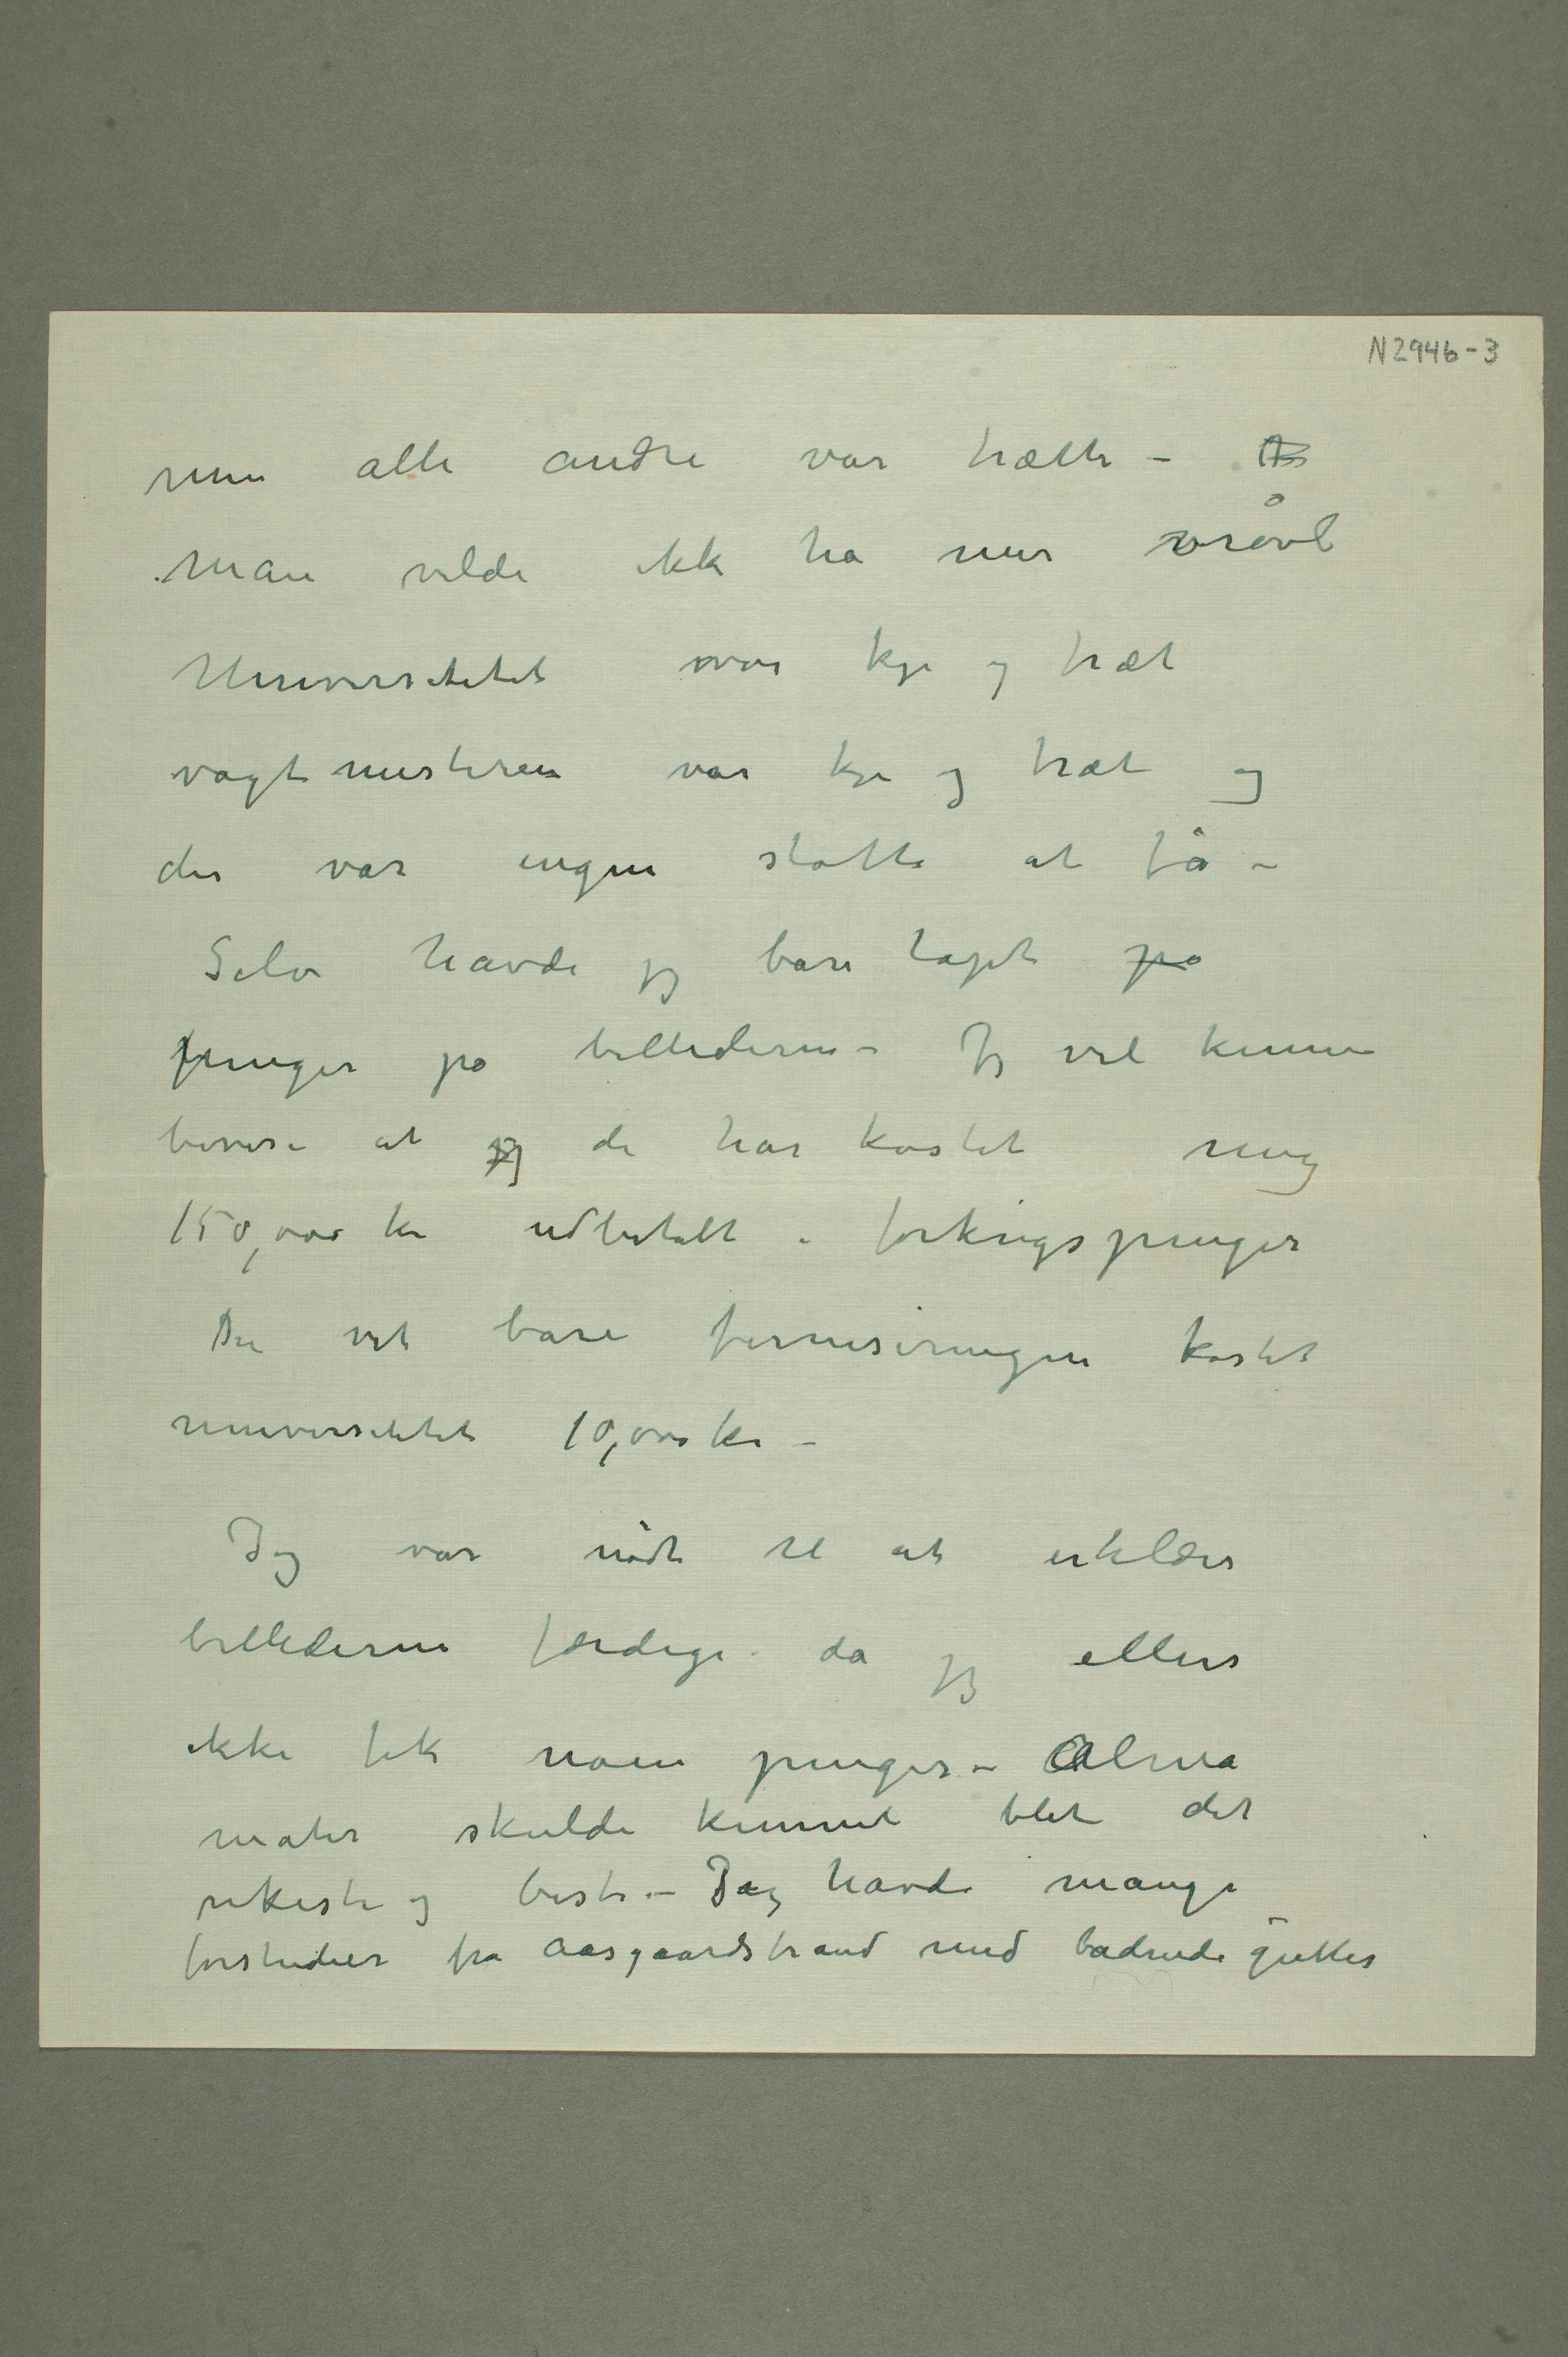 N2946-3
men alle andre var trætte –
Man vilde ikk ha mer vrøvl
Universitetet var kje og træt
vagtmesteren var kje og træt og
der var ingen støtte at få –
Selv havde jeg bare tapt på
penger på billederne – Jeg vil kunne
bevise at jeg de har kostet meg
150,000 kr udbetalt i førkrigspenger
Du vet bare ferniseringen kostet
universitetet 10,000 kr –
Jeg var nødt til at erklære
billederne færdige da jeg ellers
ikke fik noen penger – Alma
mater skulde kunnet blet det
rikeste og beste – Jeg havde mange
forstudier fra Aasgaardstrand med badende gutter